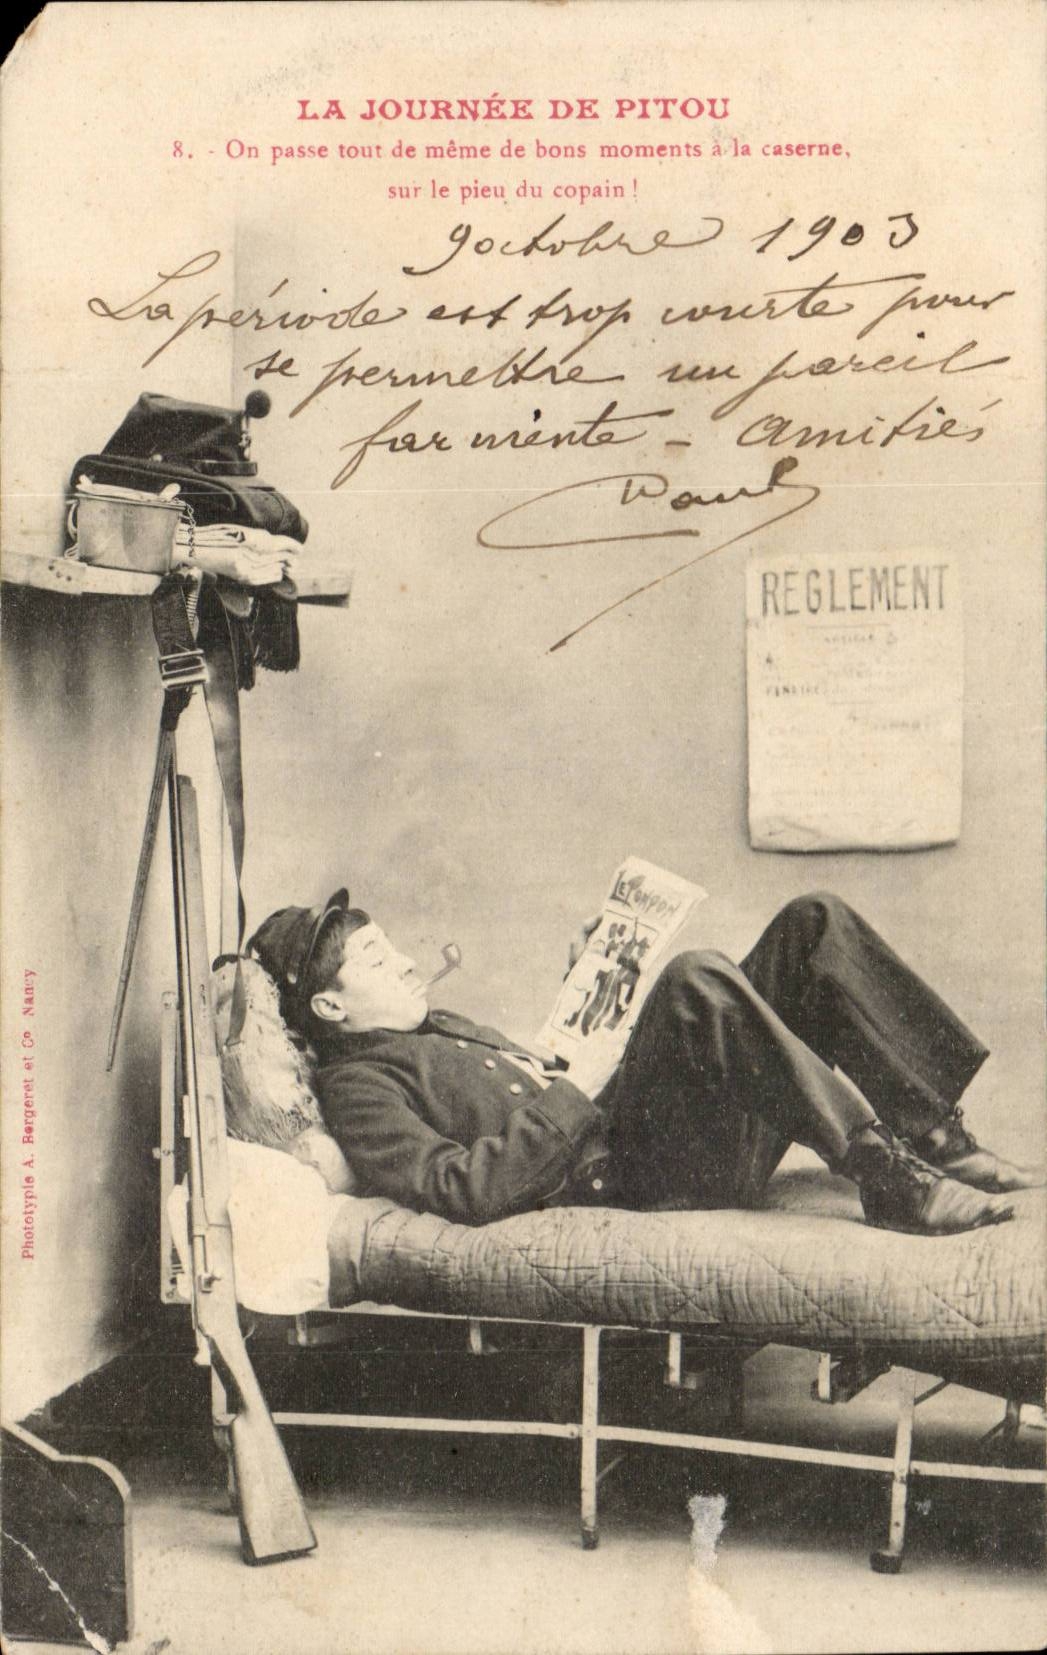 LA JOURNÉE DE PITOU
8. - On passe tout de même de bons moments à la caserne,
sur le pieu du copain !
9 octobre 1903
La période est trop courte pour
se permettre un pareil
farniente - Amitiés
Paul
REGLEMENT
LE POMPON
Phototypie A. Bergeret et Cº Nancy